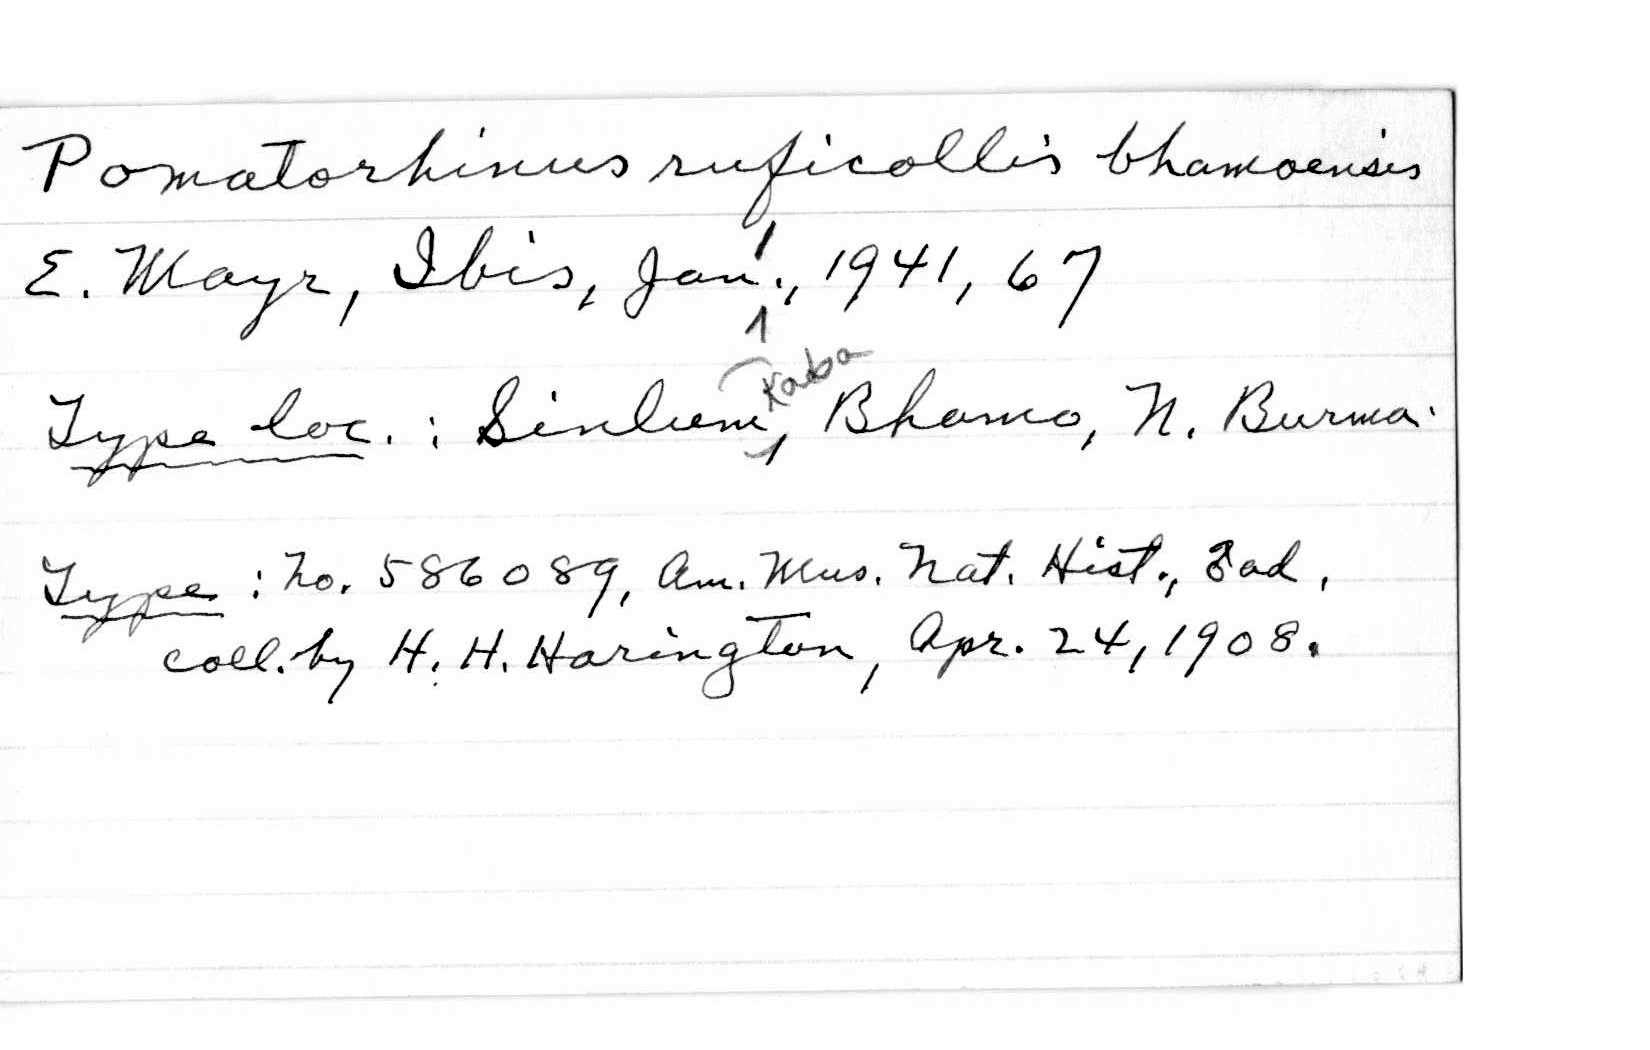 Pomatorhinus ruficollis bhamoensis
E. Mayr, Ibis, Jan. 1, 1941, 67
Type loc. : Sinlum Kaba, Bhamo, N. Burma.
Type : No. 586089, Am. Mus. Nat. Hist., ad.
coll. by H. H. Harington, Apr. 24, 1908.